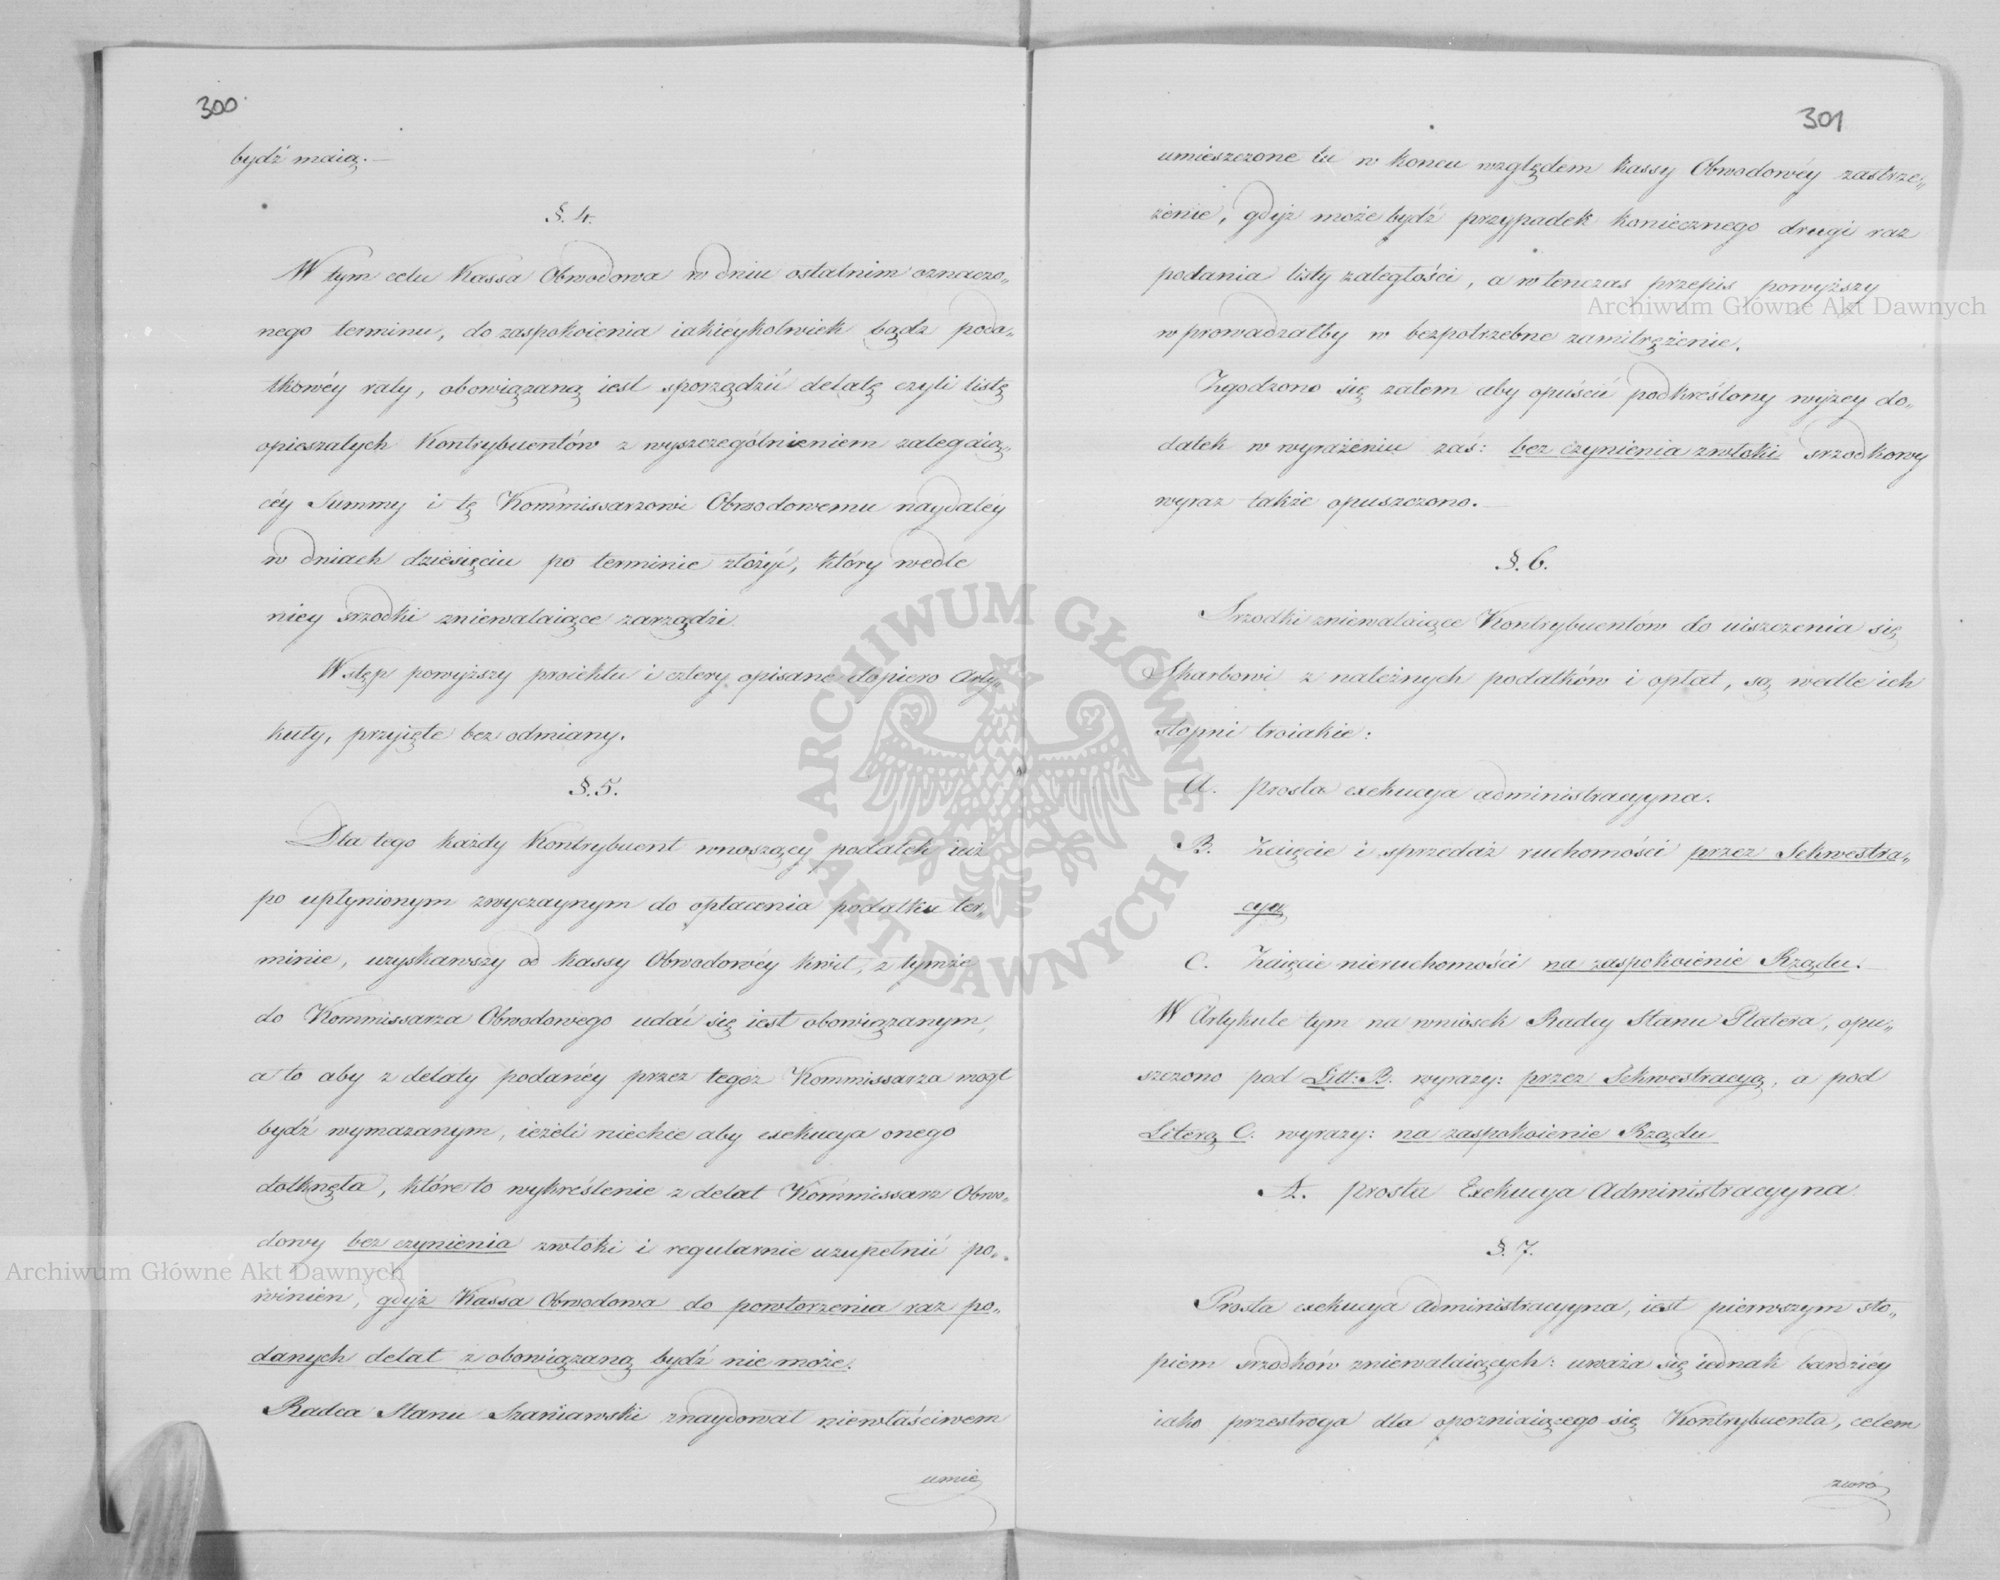 300
bydź maią.—
§. 4.
W tym celu Kassa Obwodowa w dniu ostatnim oznaczo„
nego terminu, do zaspokoienia iakieykolwiek bądz poda„
tkowéy raty, obowiązaną iest sporządzić delatę czyli listę
opieszałych Kontrybuentów z wyszczególnieniem zalegaią„
céy Summy i tę Kommissarzowi Obwodowemu naydaléy
w dniach dziesięciu po terminie złożyć, który wedle
niey srzodki zniewalaiące zarządzi.
Wstęp powyższy proiektu i cztery opisane dopiero Arty„
kuły, przyięte bez odmiany.
§. 5.
Dla tego każdy Kontrybuent wnoszący podatek iuż
po upłynionym zwyczaynym do opłacenia podatku ter„
minie, uzyskawszy od kassy Obwodowéy kwit, z tymże
do Kommissarza Obwodowego udać się iest obowiązanym,
a to aby z delaty podanéy przez tegoz Kommissarza mogł
bydź wymazanym, ieżeli niechce aby exekucya onego
dotknęła, które to wykreślenie z delat Kommissarz Obwo„
dowy bez czynienia zwłoki i regularnie uzupełnić po„
winien, gdyż Kassa Obwodowa do powtorzenia raz po„
danych delat zobowiązaną bydź nie może.
Radca Stanu Szaniawski znaydował niewłaściwem
umie
301
umieszczone tu w koncu względem kassy Obwodowéy zastrze„
żenie, gdyż może bydź przypadek koniecznego drugi raz
podania listy zaległości, a wtenczas przepis powyższy
wprowadzałby w bezpotrzebne zamitrężenie.
Zgodzono się zatem aby opuścić podkreślony wyżey do„
datek w wyrażeniu zaś: bez czynienia zwłoki srzodkowy
wyraz także opuszczono.—
§. 6.
Srzodki zniewalaiące Kontrybuentów do uiszczenia się
Skarbowi z należnych podatków i opłat, są wedle ich
stopni troiakie:
A. prosta exekucya administracyyna.
B. Zaięcie i sprzedaż ruchomości przez Sekwestra„
cyą
C. Zaięcie nieruchomości na zaspokoienie Rządu.—
W Artykule tym na wniosek Radcy Stanu Platera, opu„
szczono pod Litt: B. wyrazy: przez Sekwestracyą, a pod
Literą C. wyrazy: na zaspokoienie Rządu
A. prosta Exekucya Administracyyna
§. 7.
Prosta exekucya administracyyna, iest pierwszym sto„
piem srzodków zniewalaiących: uważa się iednak bardziéy
iako przestroga dla opozniaiącego się Kontrybuenta, celem
zwró
Archiwum Główne Akt Dawnych
Archiwum Główne Akt Dawnych
ARCHIWUM GŁÓWNE
AKT DAWNYCH